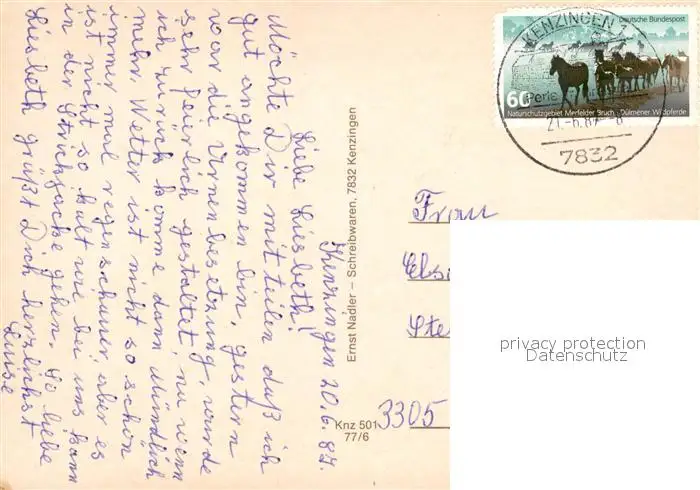 Kenzingen 20.6.87.
Liebe Liesbeth!
Möchte Dir mitteilen daß ich
gut angekommen bin, gestern
war die Urnenbesetzung, wurde
sehr feierlich gestaltet, na wenn
ich zurück komme dann mündlich
mehr. Wetter ist nicht so schön
immer mal regenschauer aber es
ist nicht so kalt wie bei uns kann
in der Strickjacke gehen. So liebe
Liesbeth grüßt Dich herzlichst
Luise
Ernst Nadler – Schreibwaren, 7832 Kenzingen
Knz 501
77/6
KENZINGEN 1
Perle
21.-6.87.-8
7832
Deutsche Bundespost
60
Naturschutzgebiet Merfelder Bruch Dülmener Wildpferde
Frau
Els
Ste
3305
privacy protection
Datenschutz